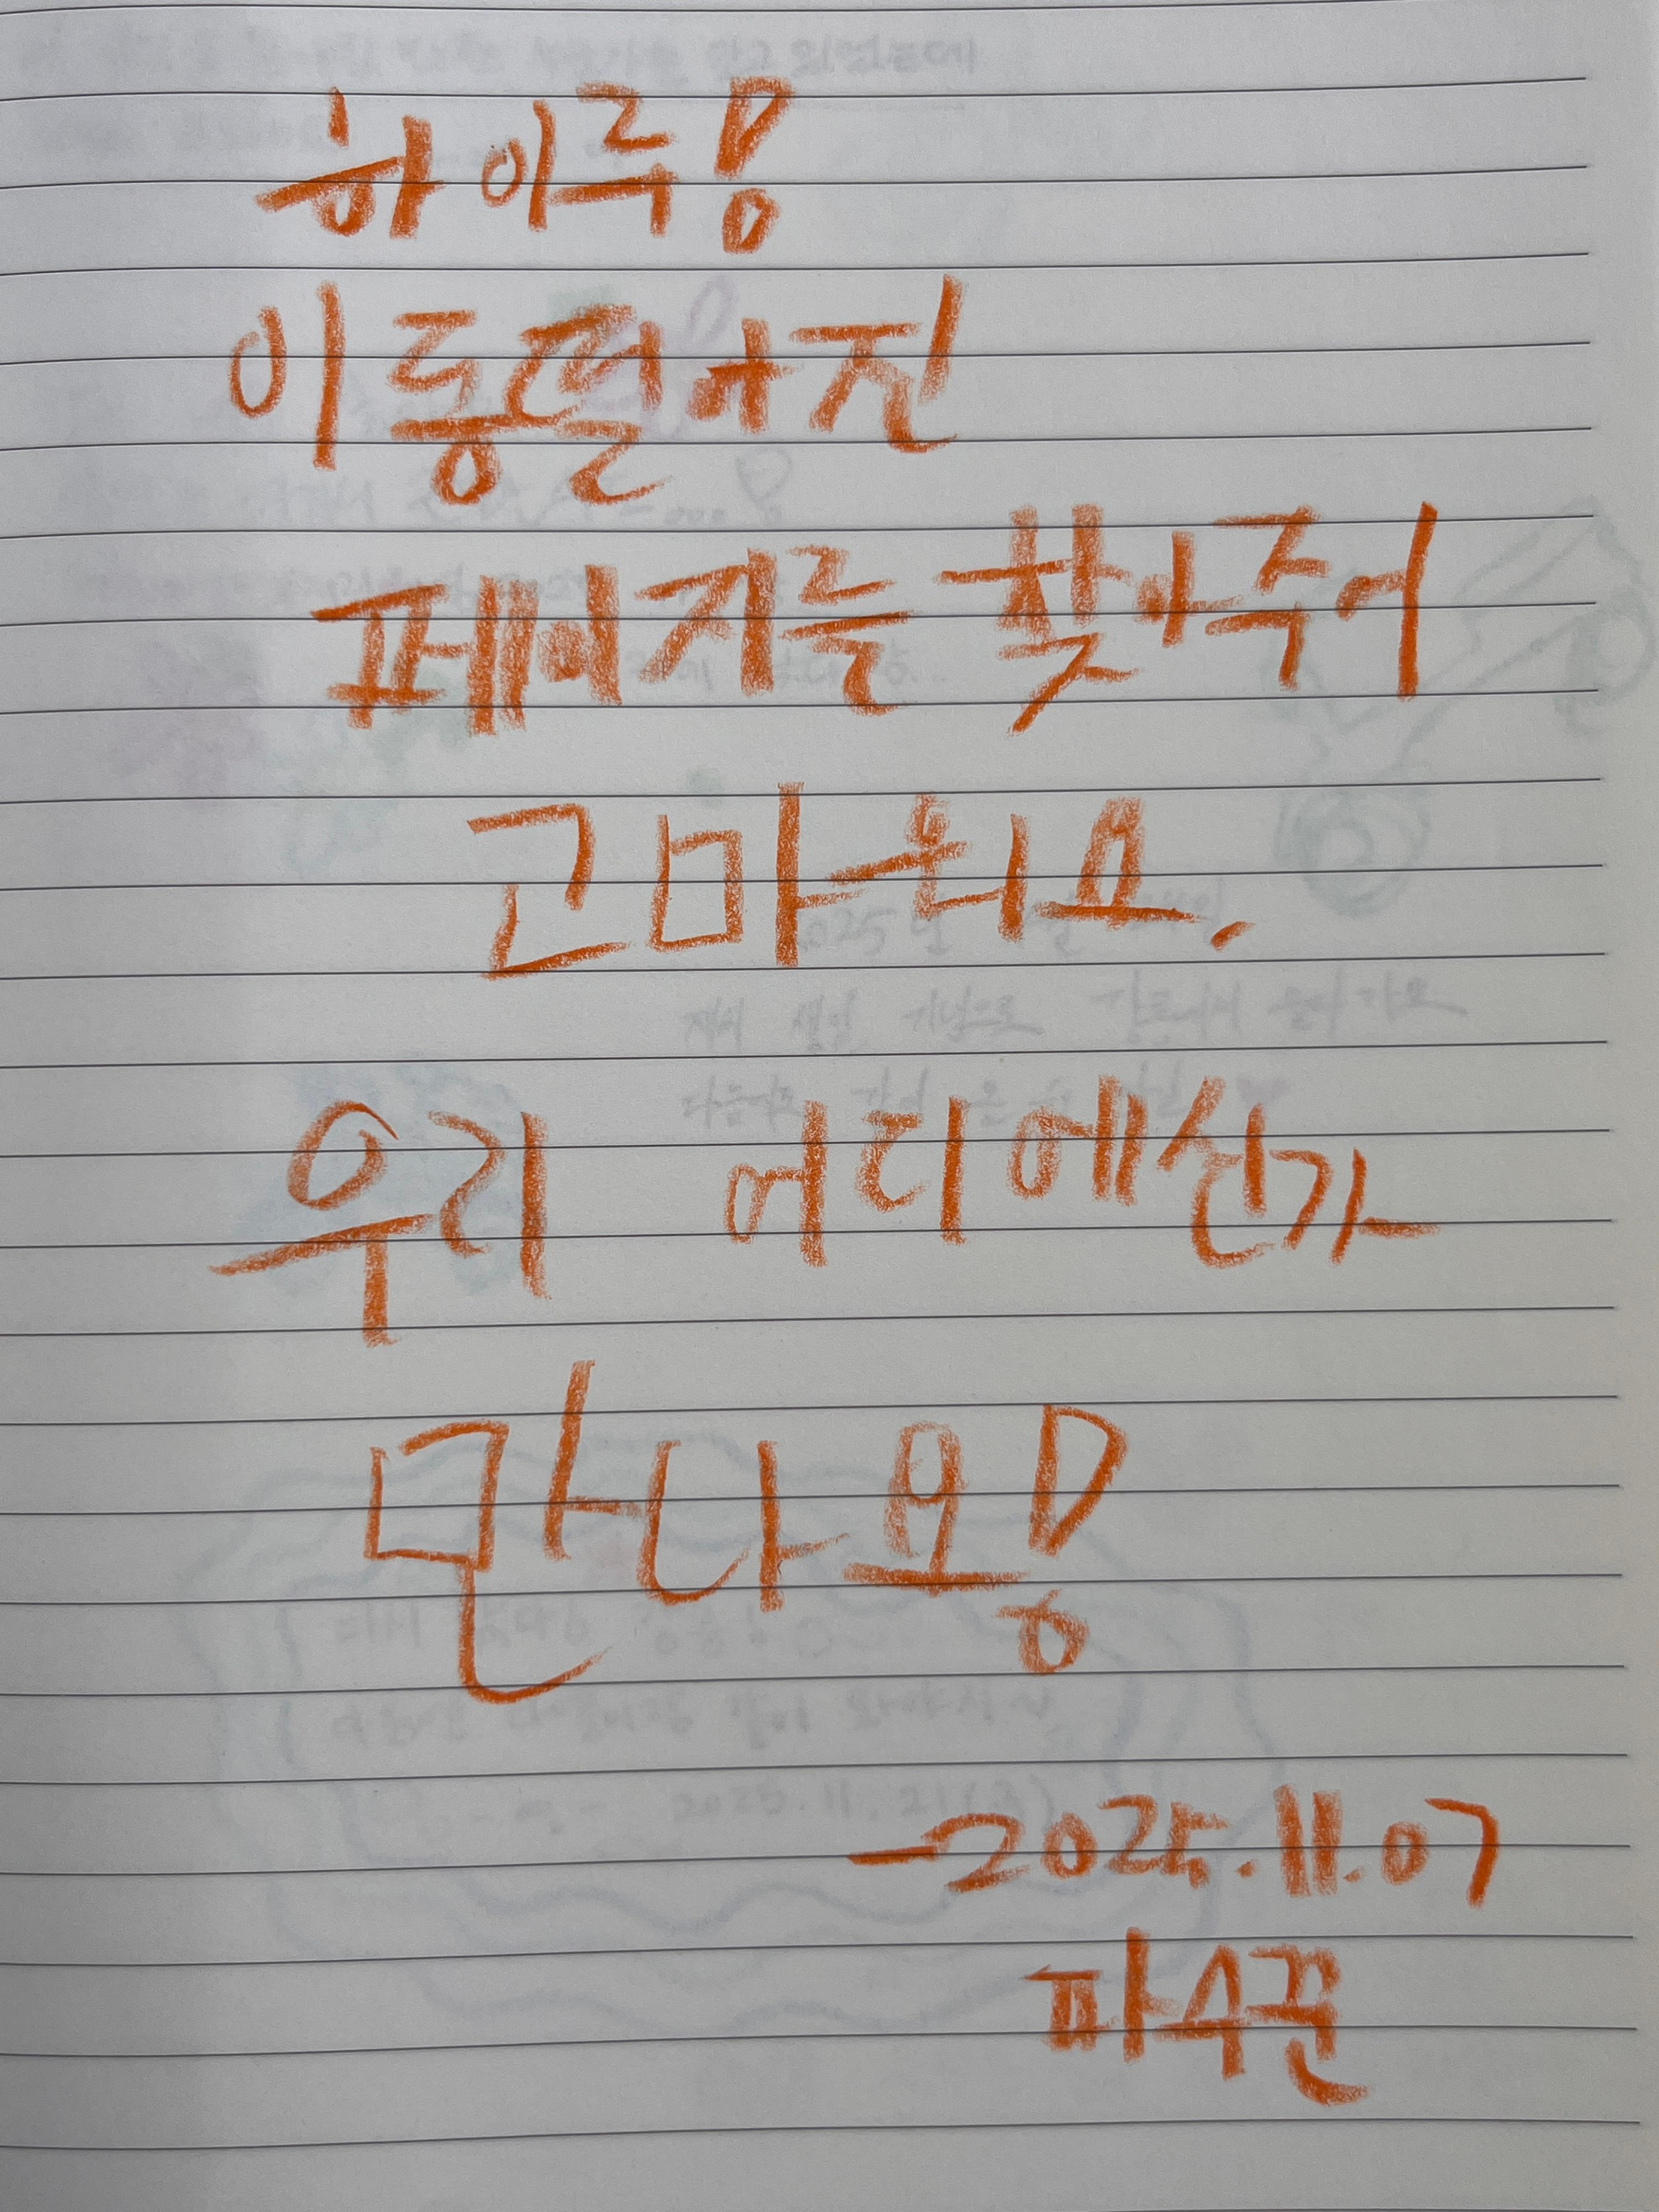 하이루!
이 동떨어진
페이지를 찾아주어
고마워요.
우리 어디에선가
만나요!
-2025.11.07
파수꾼